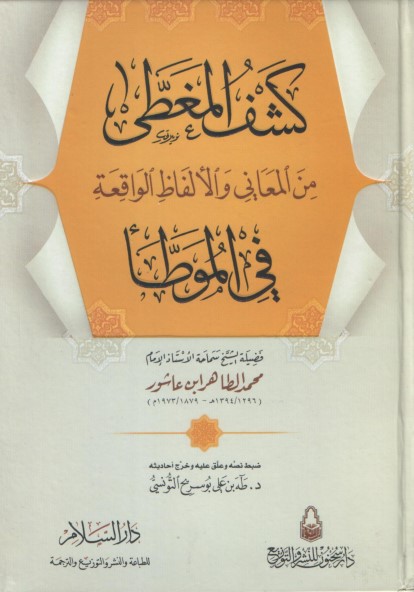 كشف المغطى
من المعاني والألفاظ الواقعة
في الموطأ
فضيلة الشيخ سماحة الأستاذ الإمام
محمد الطاهر ابن عاشور
(١٢٩٦/١٣٩٤هـ - ١٨٧٩/١٩٧٣م)
ضبط نصه وعلق عليه وخرج أحاديثه
د. طه بن علي بوسريح التونسي
دار سحنون للنشر والتوزيع
دار السلام
للطباعة والنشر والتوزيع والترجمة